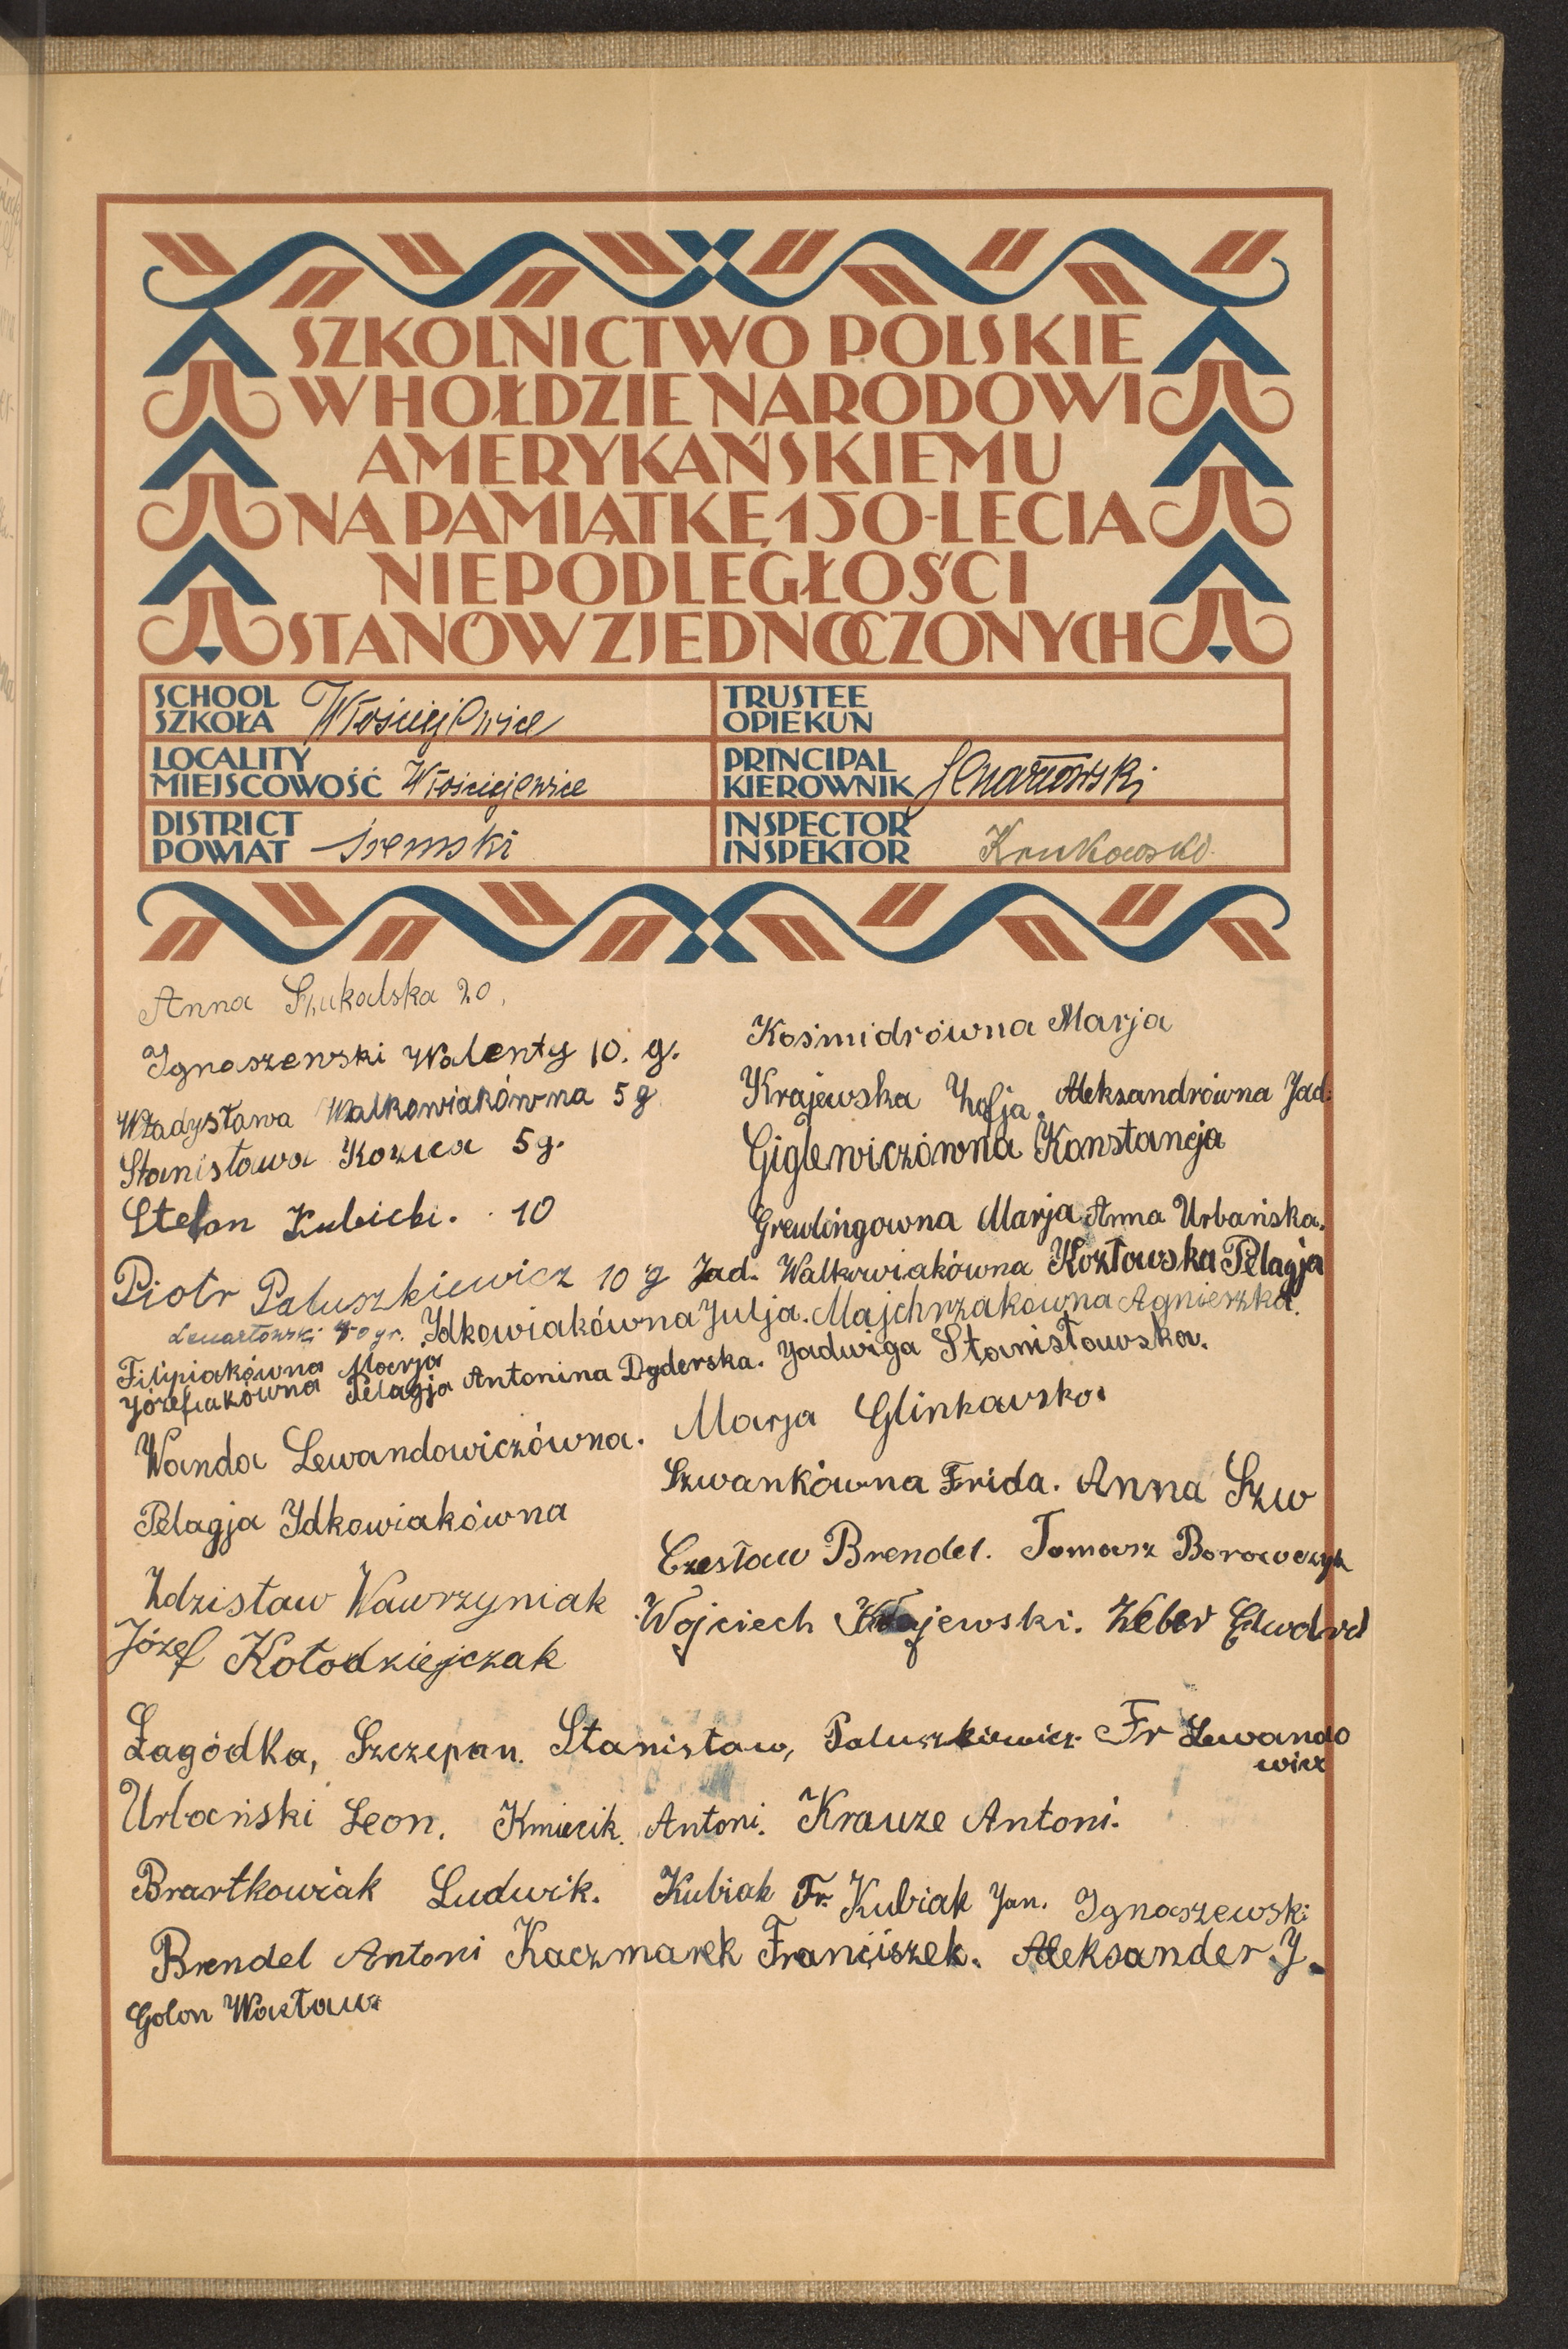 SZKOLNICTWO POLSKIE
W HOŁDZIE NARODOWI
AMERYKAŃSKIEMU
NA PAMIĄTKĘ 150-LECIA
NIEPODLEGŁOŚCI
STANÓW ZJEDNOCZONYCH
SCHOOL
SZKOŁA Włościejewice
TRUSTEE
OPIEKUN
LOCALITY
MIEJSCOWOŚĆ Włościejewice
PRINCIPAL
KIEROWNIK
DISTRICT
POWIAT śremski
INSPECTOR
INSPEKTOR Krukowski
Anna Szukalska 20.
Ignaszewski Walenty 10. g.
Władysława Walkowiakówna 5 g
Stanisława Kozica 5 g.
Stefan Kubicki. 10
Kośmidrówna Marja
Krajewska Zofja. Aleksandrówna Jad.
Giglewiczówna Konstancja
Grewlingowna Marja Anna Urbańska.
Piotr Paluszkiewicz 10 g Jad. Walkowiakówna Kozłowska Pelagja
Lenartowski 40 gr. Idkowiakówna Julja. Majchrzakowna Agnieszka.
Filipiakówna Marja
Józefiakówna Pelagja Antonina Dyderska. Jadwiga Stanisławska.
Wanda Lewandowiczówna. Marja Glinkawska
Szwankówna Frida. Anna Szw
Pelagja Idkowiakówna
Czesław Brendel. Tomasz Borowczyk
Zdzisław Wawrzyniak
Wojciech Krajewski. Weber Edward
Józef Kołodziejczak
Łagódka, Szczepan. Stanisław, Paluszkiewicz Fr Lewando
wicz
Urbański Leon. Kmiecik Antoni. Krauze Antoni.
Brartkowiak Ludwik. Kubiak Fr. Kubiak Jan. Ignaszewski
Brendel Antoni Kaczmarek Franciszek. Aleksander J.
Golon Wacław